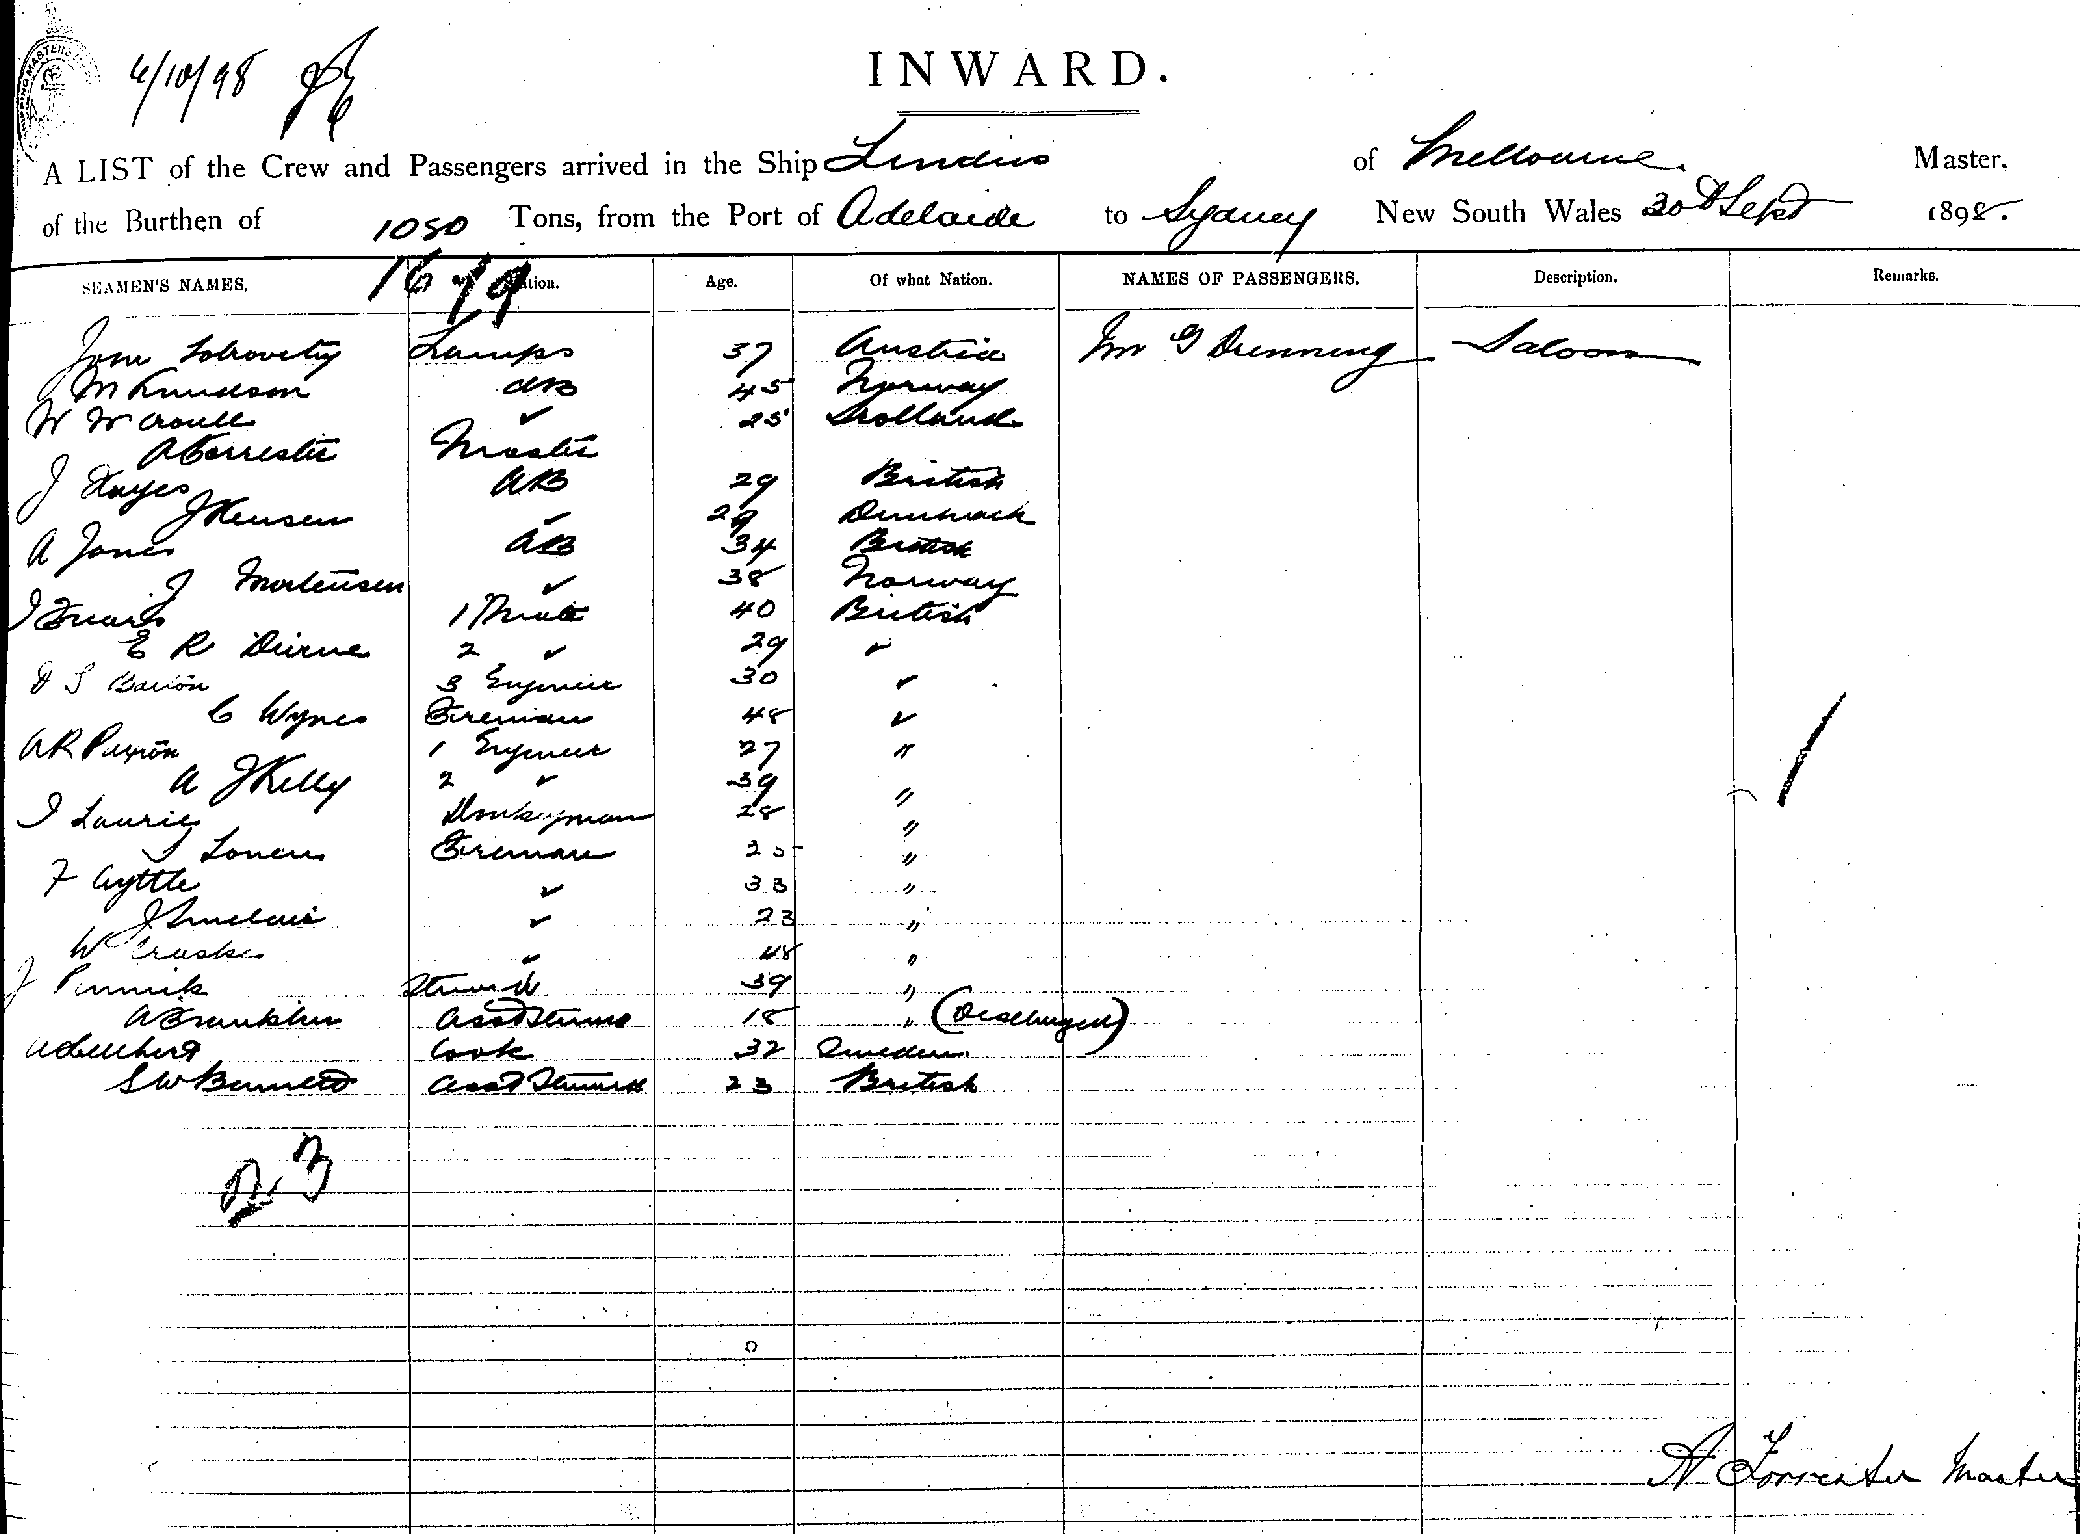 6/10/98
INWARD.
A LIST of the Crew and Passengers arrived in the Ship of Melbourne Master.
of the Burthen of 1080 Tons, from the Port of Adelaide to Sydney New South Wales 30th Sept 1898.
1679
SEAMEN'S NAMES. Age. Of what Nation. NAMES OF PASSENGERS. Description. Remarks.
Lamps 37 Austria G Saloon
M Knudson AB 45 Norway
W W ✓ 25 Holland
A Forrester Master
J Hayes AB 29 British
J ✓ 29 Denmark
A Jones AB 34 British
J Mortensen ✓ 38 Norway
1 Mate 40 British
E R 2 ✓ 29 ✓
3 Engineer 30 ✓
C Wynes Fireman 48 ✓
A R 1 Engineer 27 "
A J Kelly 2 ✓ 39 "
J Laurie Donkeyman 28 "
J Fireman 25 "
F ✓ 33 "
J Sinclair ✓ 23 "
W ✓ 48 "
J Steward 39 "
A Franklin Asst Steward 18 " (Discharged)
Cook 32 Sweden
S W Bennett Asst Steward 23 British
23
A Forrester Master